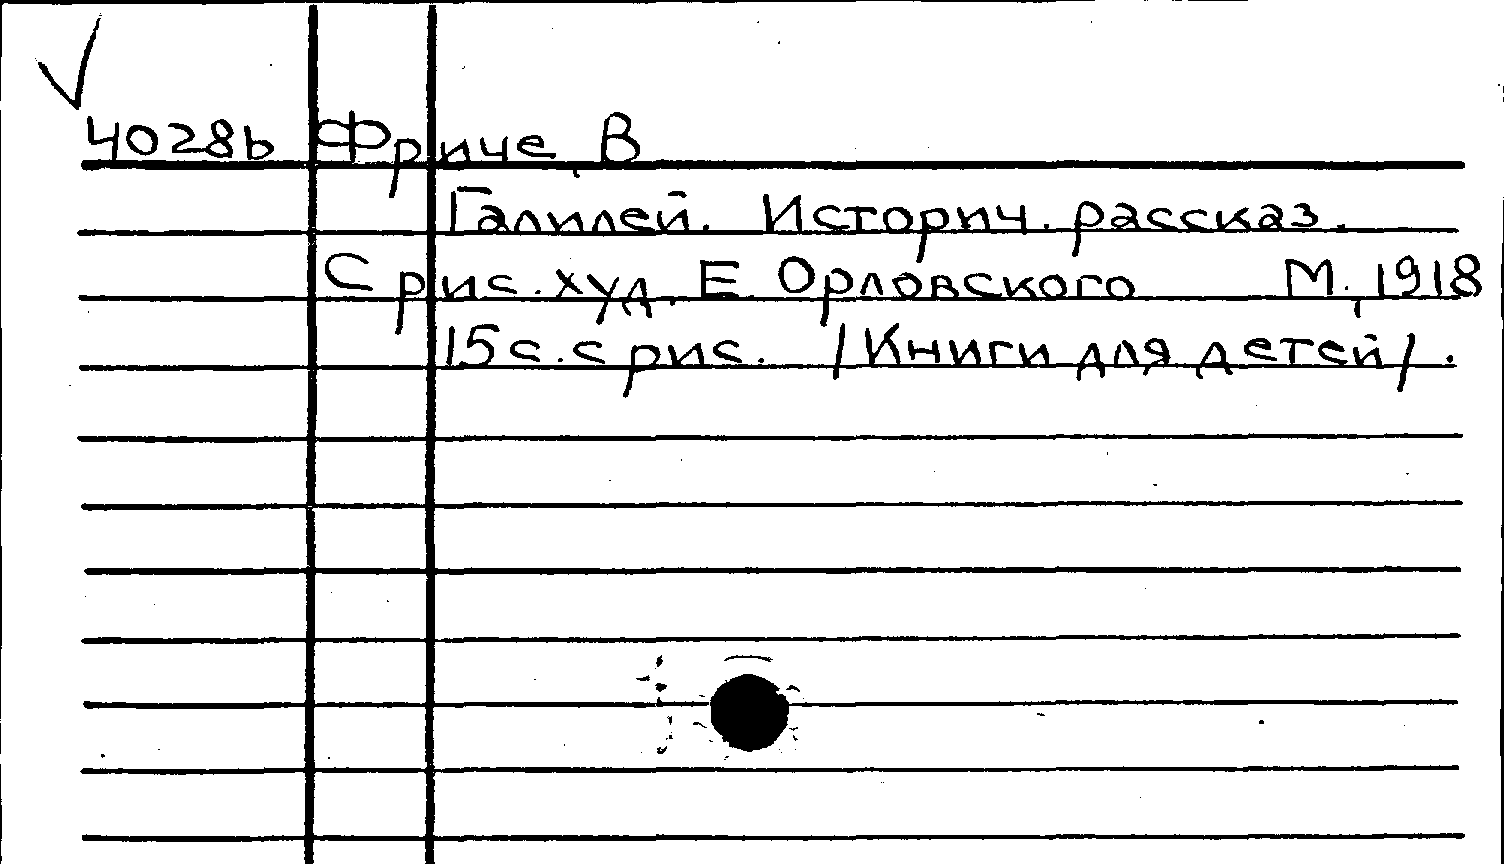 4028b Фриче, В
Галилей. Историч. рассказ.
С рис. худ. Е. Орловского М., 1918
15 с. с рис. /Книги для детей/.